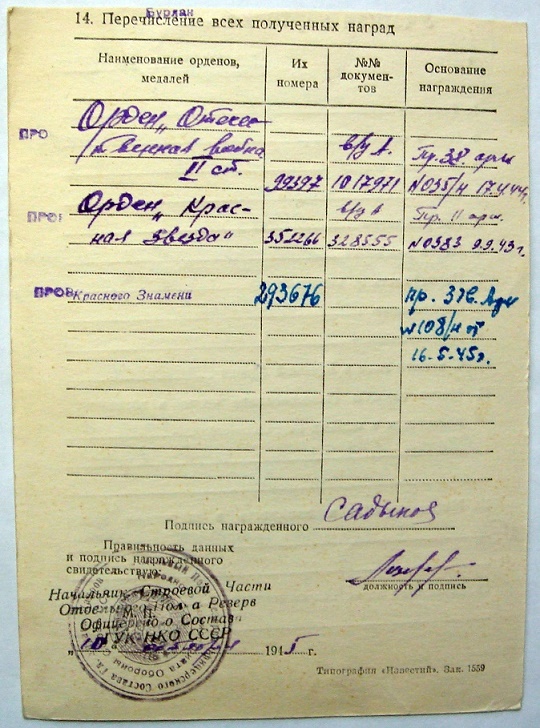 Бурлан
14. Перечисление всех полученных наград
Наименование орденов, медалей
Их номера
№№ документов
Основание награждения
ПРО
Орден „Отечес-
твенная война
II ст.
99397
в/уд А.
1017971
Пр. 38 арм
N035/н 17.4.44г.
ПРО
Орден „Крас-
ная Звезда"
351266
в/уд А
328555
Пр. 11 арм.
N0383 9.9.43г.
ПРОВ
Красного Знамени
293676
пр.
N108/н от
16.5.45г.
Подпись награжденного Садыков
Правильность данных
и подпись награжденного
свидетельствую:
должность и подпись
Начальник Строевой Части
Отдельного Полка Резерв
Офицерского Состава
М. П.
ГУК НКО СССР
„10" 1945 г.
Типография «Известий». Зак. 1559